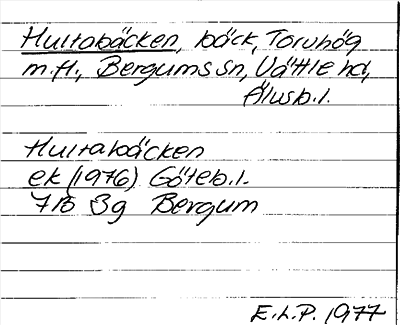 Hultabäcken, bäck, Toruhög
m.fl., Bergums sn, Vättle hd,
Älvsb.l.
Hultabäcken
ek (1976) Göteb.l.
7B 3g Bergum
E.L.P. 1977